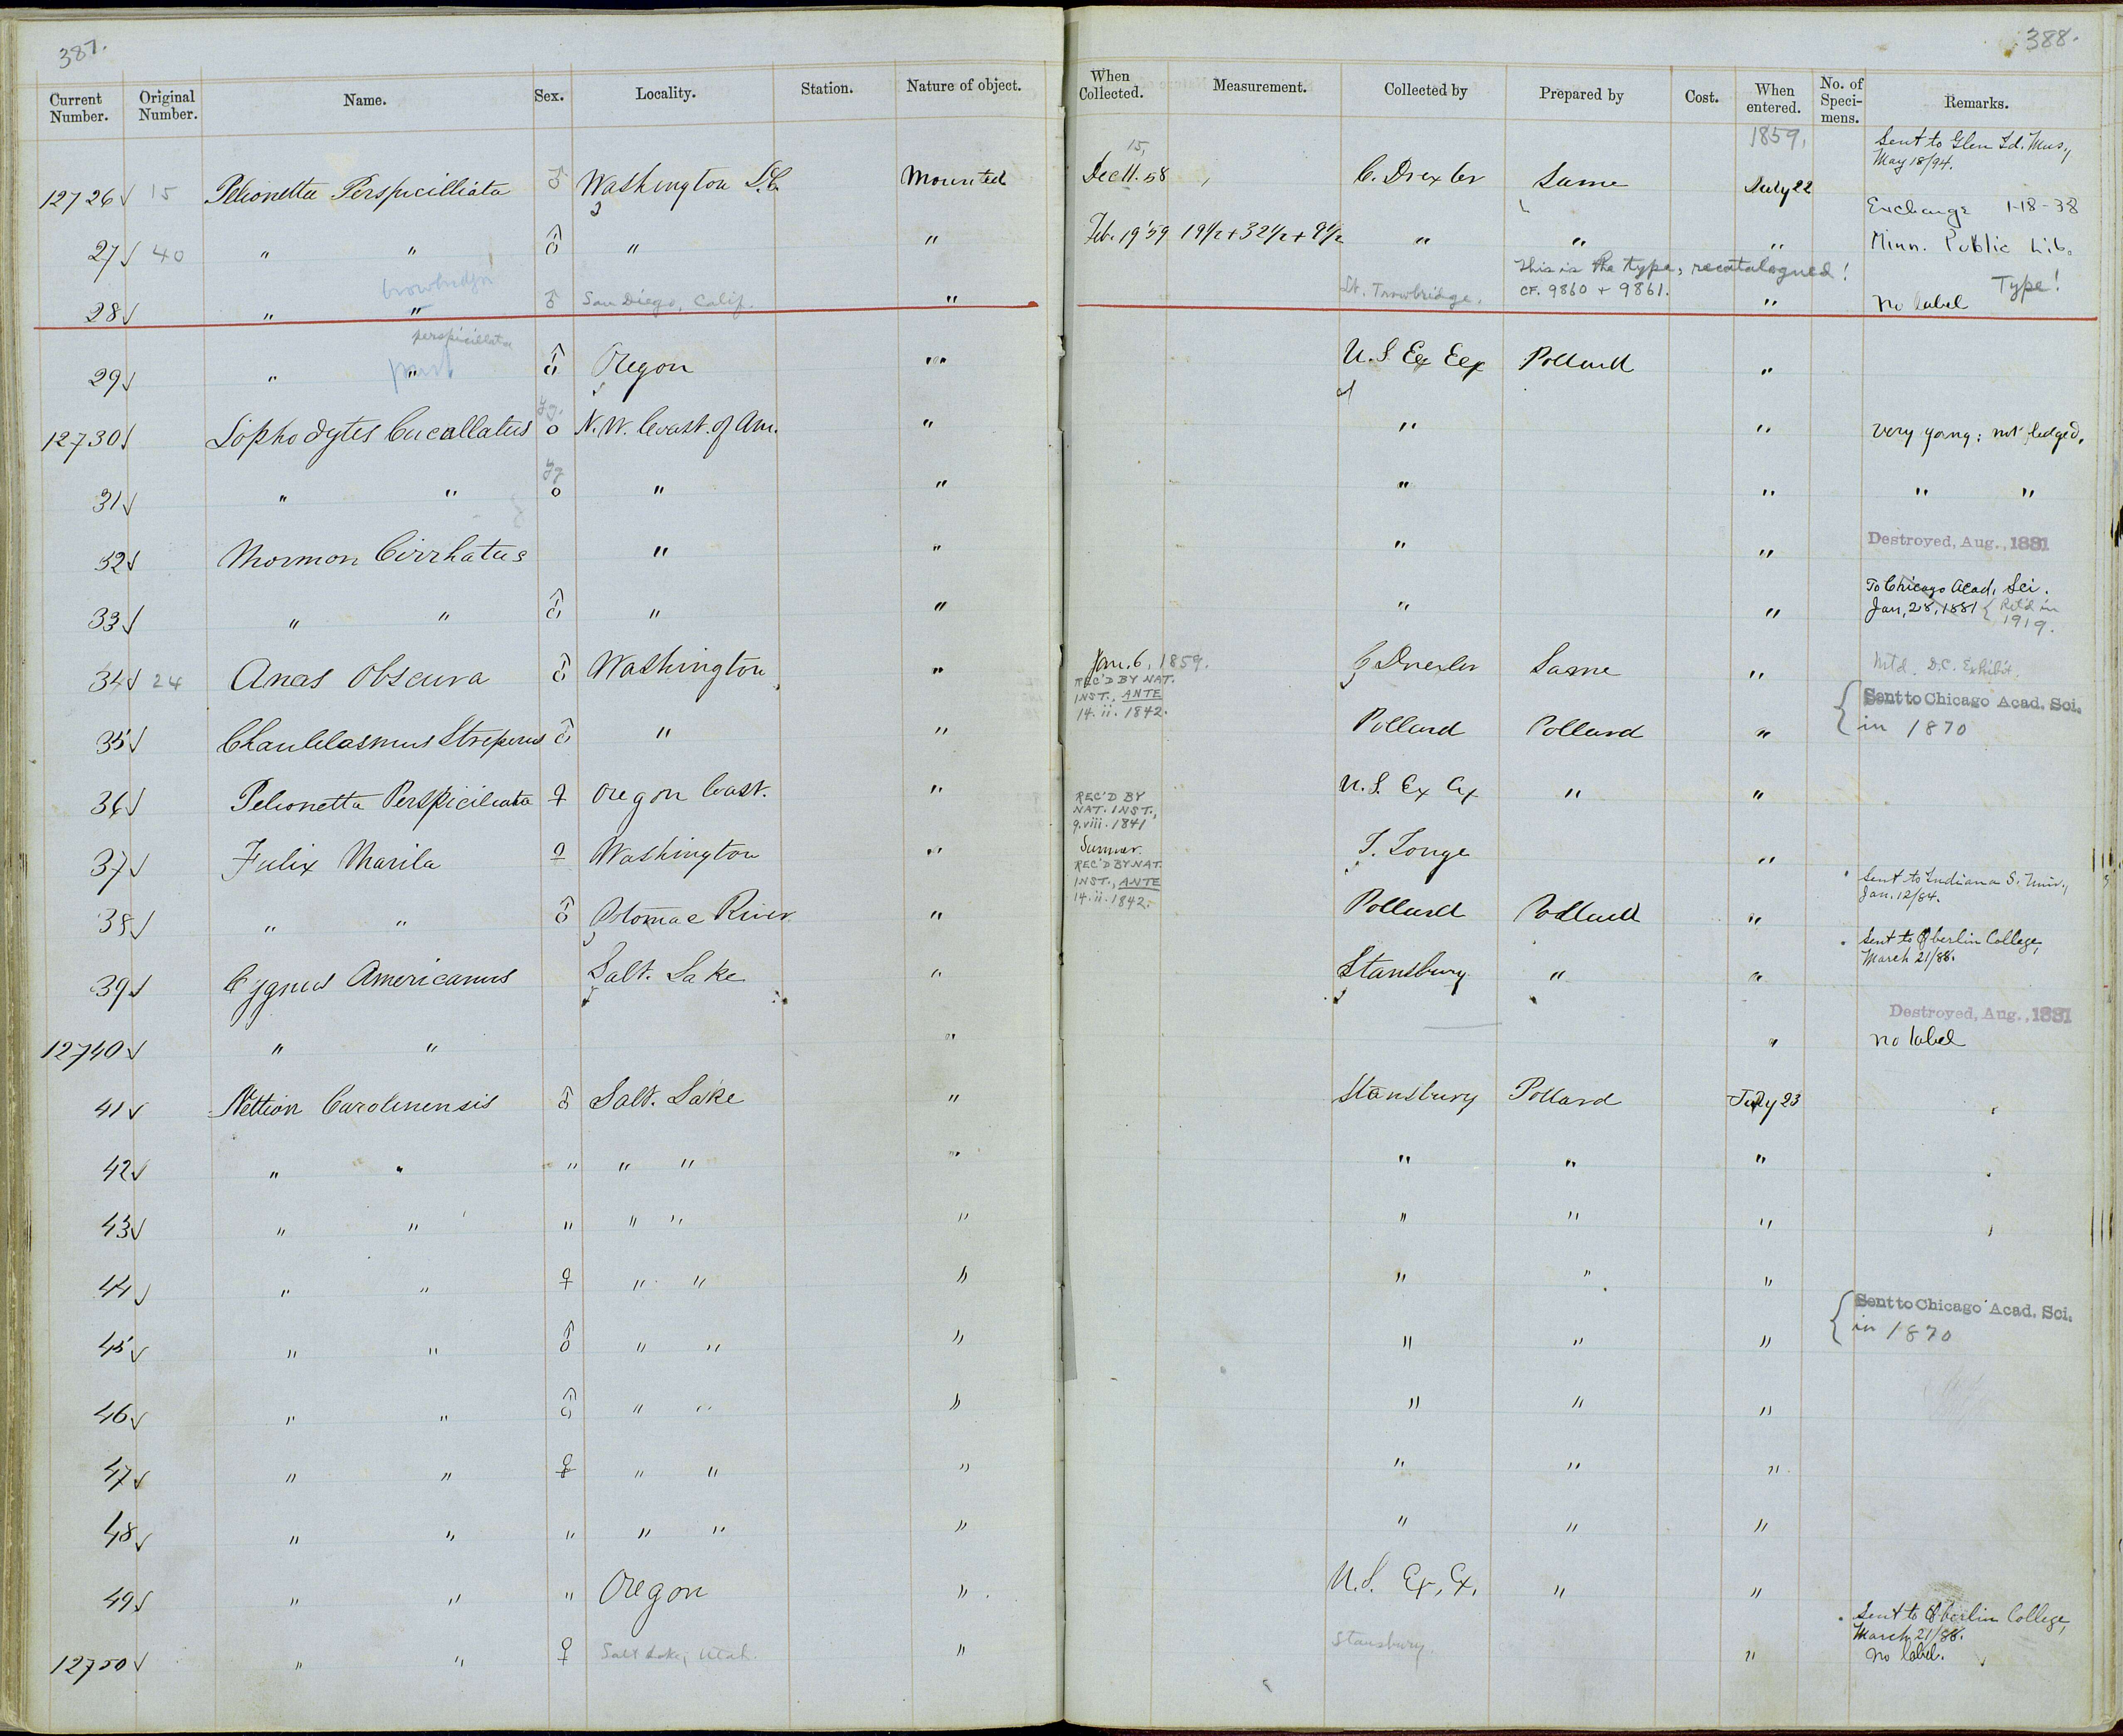 387.
388.
Current Number. Original Number. Name. Sex. Locality. Station. Nature of object. When Collected. Measurement. Collected by Prepared by Cost. When entered. No. of Specimens. Remarks.
1859.
12726 √ 15 Pelionetta Perspicilliata ♂ Washington D.C. Mounted Dec 11. 58 15, C. Drexler Same July 22 Sent to Glen Id. Mus., May 18/94.
27 √ 40 " " ♂ " " Feb. 19 '59 19 1/2 + 32 1/2 + 9 1/2 " " " Exchange 1-18-38 Minn. Public Lib.
28 √ " " trowbridgii ♂ San Diego, Calif. " Lt. Trowbridge. This is the type, recatalogued! CF. 9860 + 9861. " no label Type!
29 √ " " perspicillata ♂ Oregon " U.S. Ex Exp Pollard "
12730 √ Lophodytes Cucullatus yg. o N.W. Coast. of Am. " " " very young: not fledged.
31 √ " " yg o " " " " " "
32 √ Mormon Cirrhatus " " " " Destroyed, Aug., 1881
33 √ " " ♂ " " " " To Chicago Acad. Sci. Jan. 28, 1881 { Ret'd in 1919.
34 √ 24 Anas Obscura ♂ Washington " Jan. 6, 1859. C Drexler Same " Mt'd. D.C. Exhibit.
35 √ Chaulelasmus Streperus ♂ " " REC'D BY NAT. INST., ANTE 14.ii.1842. Pollard Pollard " { Sent to Chicago Acad. Sci. in 1870
36 √ Pelionetta Perspiciliata ♀ Oregon Coast. " U.S. Ex Ex " "
37 √ Fulix Marila ♀ Washington " REC'D BY NAT. INST., 9.viii.1841 Summer. "
38 √ " " ♂ Potomac River " REC'D BY NAT. INST., ANTE 14.ii.1842. Pollard Pollard " Sent to Indiana S. Univ., Jan. 12/84.
39 √ Cygnus Americanus Salt. Lake " Stansbury " " Sent to Oberlin College, March 21/88.
12740 √ " " " " Destroyed, Aug., 1881 no label
41 √ Nettion Carolinensis ♂ Salt. Lake " Stansbury Pollard July 23
42 √ " " " " " " " " "
43 √ " " " " " " " " "
44 √ " " ♀ " " " " " "
45 √ " " ♂ " " " " " " { Sent to Chicago Acad. Sci. in 1870
46 √ " " ♂ " " " " " "
47 √ " " ♀ " " " " " "
48 √ " " " " " " " " "
49 √ " " " Oregon " U.S. Ex. Ex. " "
12750 √ " " ♀ Salt Lake, Utah. " Stansbury. " Sent to Oberlin College, March 21/88. no label.